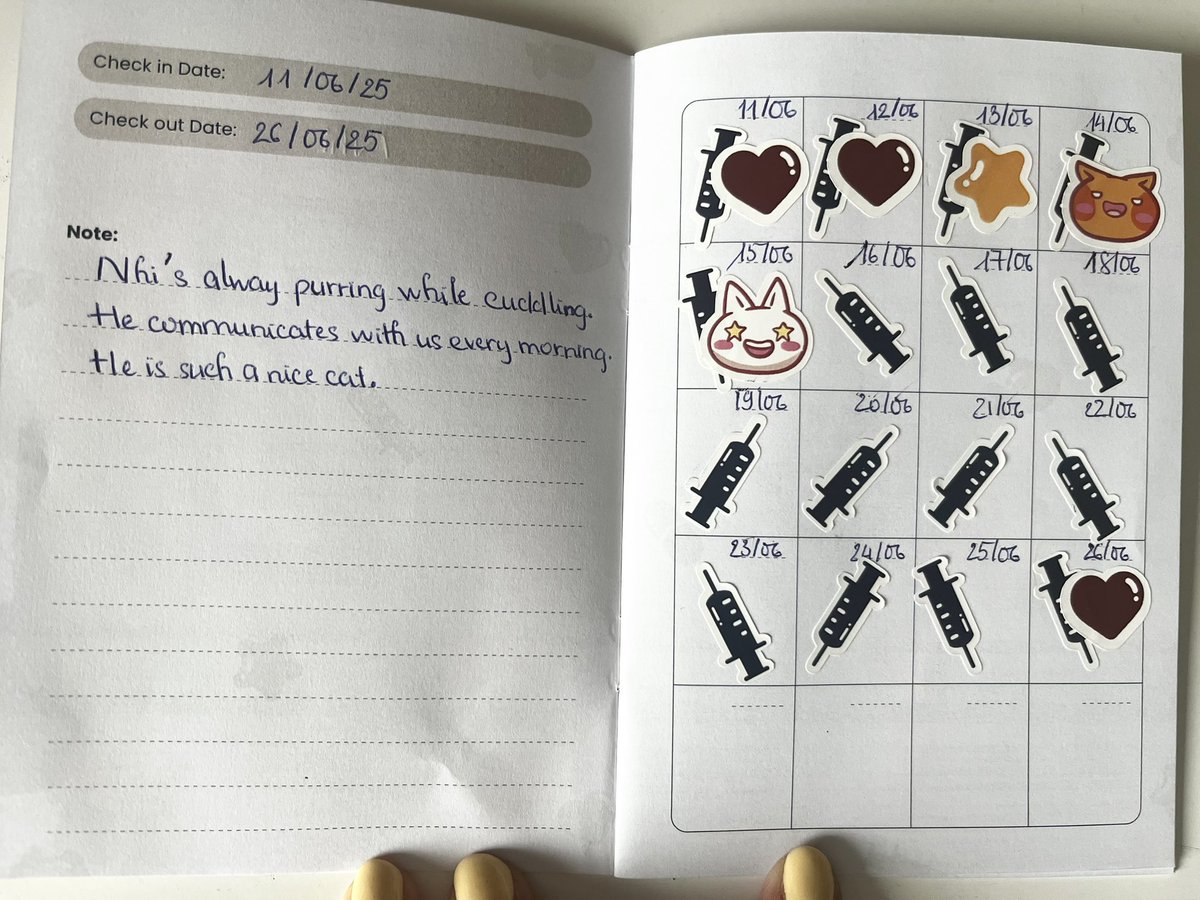 Check in Date: 11/06/25
Check out Date: 26/06/25
Note:
Nhi's alway purring while cuddling.
He communicates with us every morning.
He is such a nice cat.
11/06 12/06 13/06 14/06
15/06 16/06 17/06 18/06
19/06 20/06 21/06 22/06
23/06 24/06 25/06 26/06